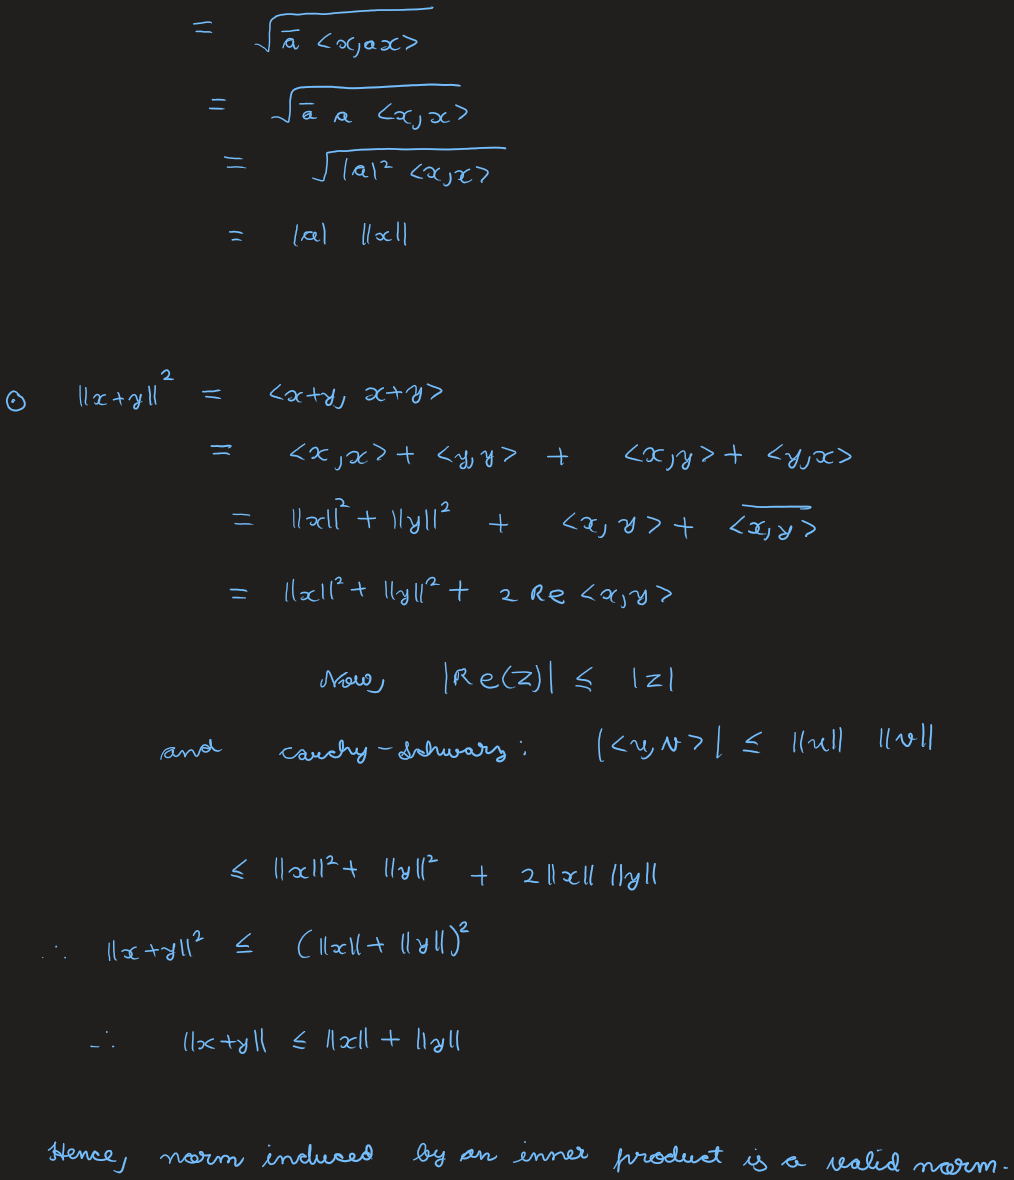 = √(a̅ <x,ax>)
= √(a̅ a <x,x>)
= √(|a|² <x,x>)
= |a| ||x||
⊙ ||x+y||² = <x+y, x+y>
= <x,x> + <y,y> + <x,y> + <y,x>
= ||x||² + ||y||² + <x,y> + <x,y>̅
= ||x||² + ||y||² + 2 Re <x,y>
Now, |Re(z)| ≤ |z|
and cauchy-schwarz: |<u,v>| ≤ ||u|| ||v||
≤ ||x||² + ||y||² + 2||x|| ||y||
∴ ||x+y||² ≤ (||x|| + ||y||)²
∴ ||x+y|| ≤ ||x|| + ||y||
Hence, norm induced by an inner product is a valid norm.